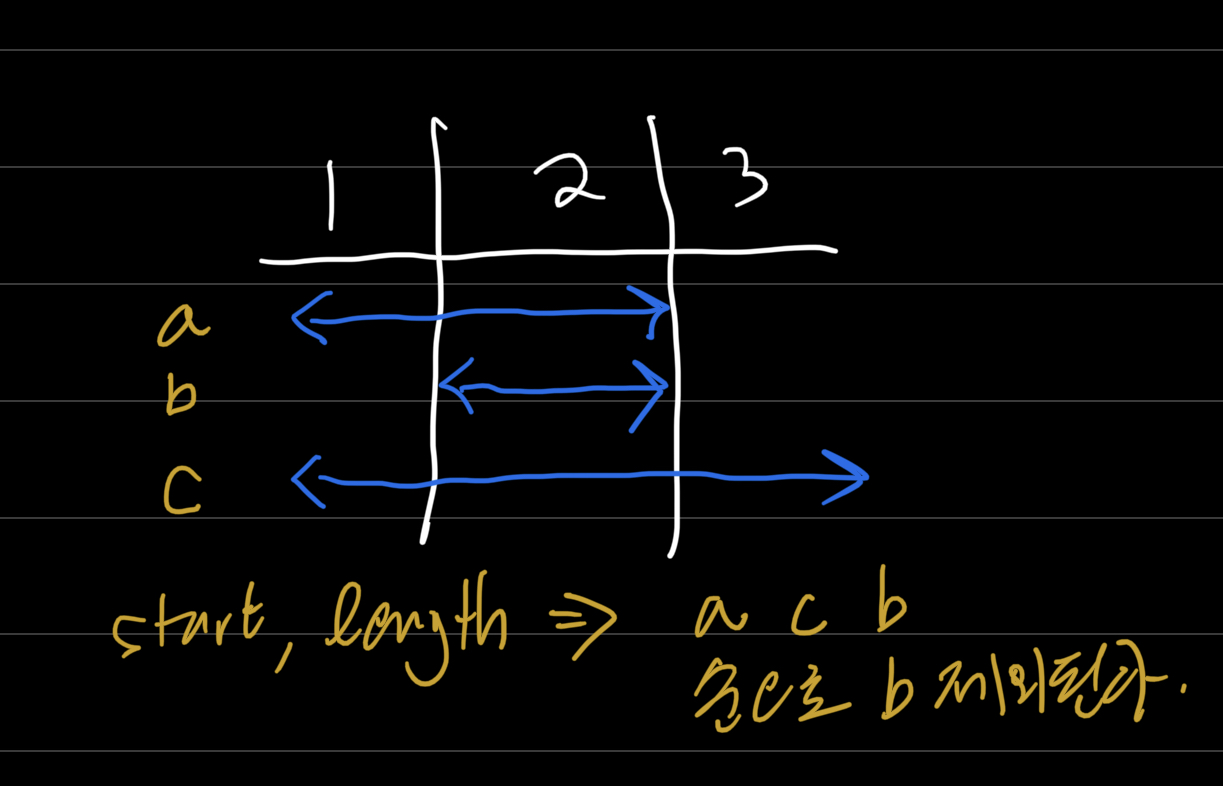 1 2 3
a
b
c
start, length ⇒ a c b
순으로 b 제외된다.